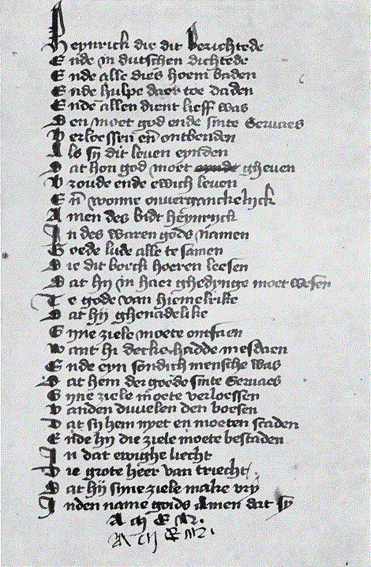 Heynrick die dit berichtede
Ende in dutschen dichtede
Ende alle dies hoem baden
Ende hulpe daer toe daden
Ende allen dient lieff was
Den moet god ende sinte Seruaes
Verloessen en̄ ontbenden
Als sy dit leuen eynden
Dat hon god moet gheuen
Vroude ende ewich leuen
En̄ wonne onuerganckelijck
Amen des bidt heynryck
In des waren gods namen
Goede lude alle te samen
Die dit boeck hoeren leesen
Dat hij in haer ghedynge moet wesen
Te gode van hiemelrike
Dat hij ghenadelike
Syne ziele moete ontfaen
Want hi decke hadde mesdaen
Ende eyn sondich mensche was
Dat hem der goede sinte Seruaes
Syne ziele moete verloessen
Vanden duuelen den boesen
Dat sy hem nyet en moeten scaden
Ende hij die ziele moete bestaden
In dat ewighe liecht
Die grote heer van triecht
Dat hij syne ziele make vrij
Inden name goids Amen dat sy